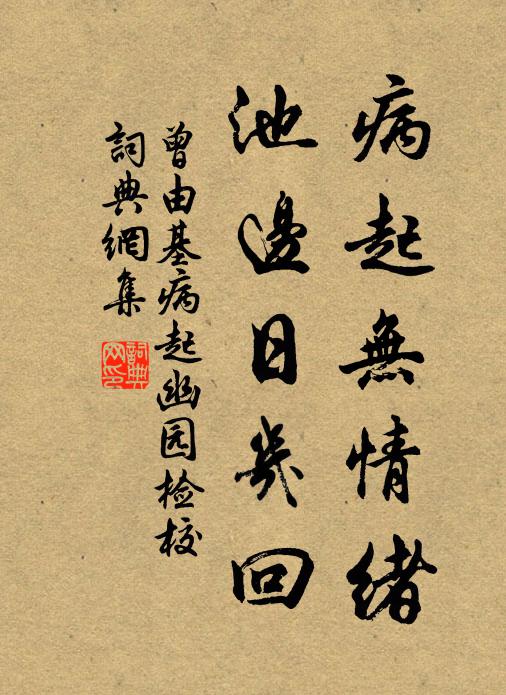 病起無情緒
池邊日幾回
曾由基病起幽园检校
詞典網集
詞典網印